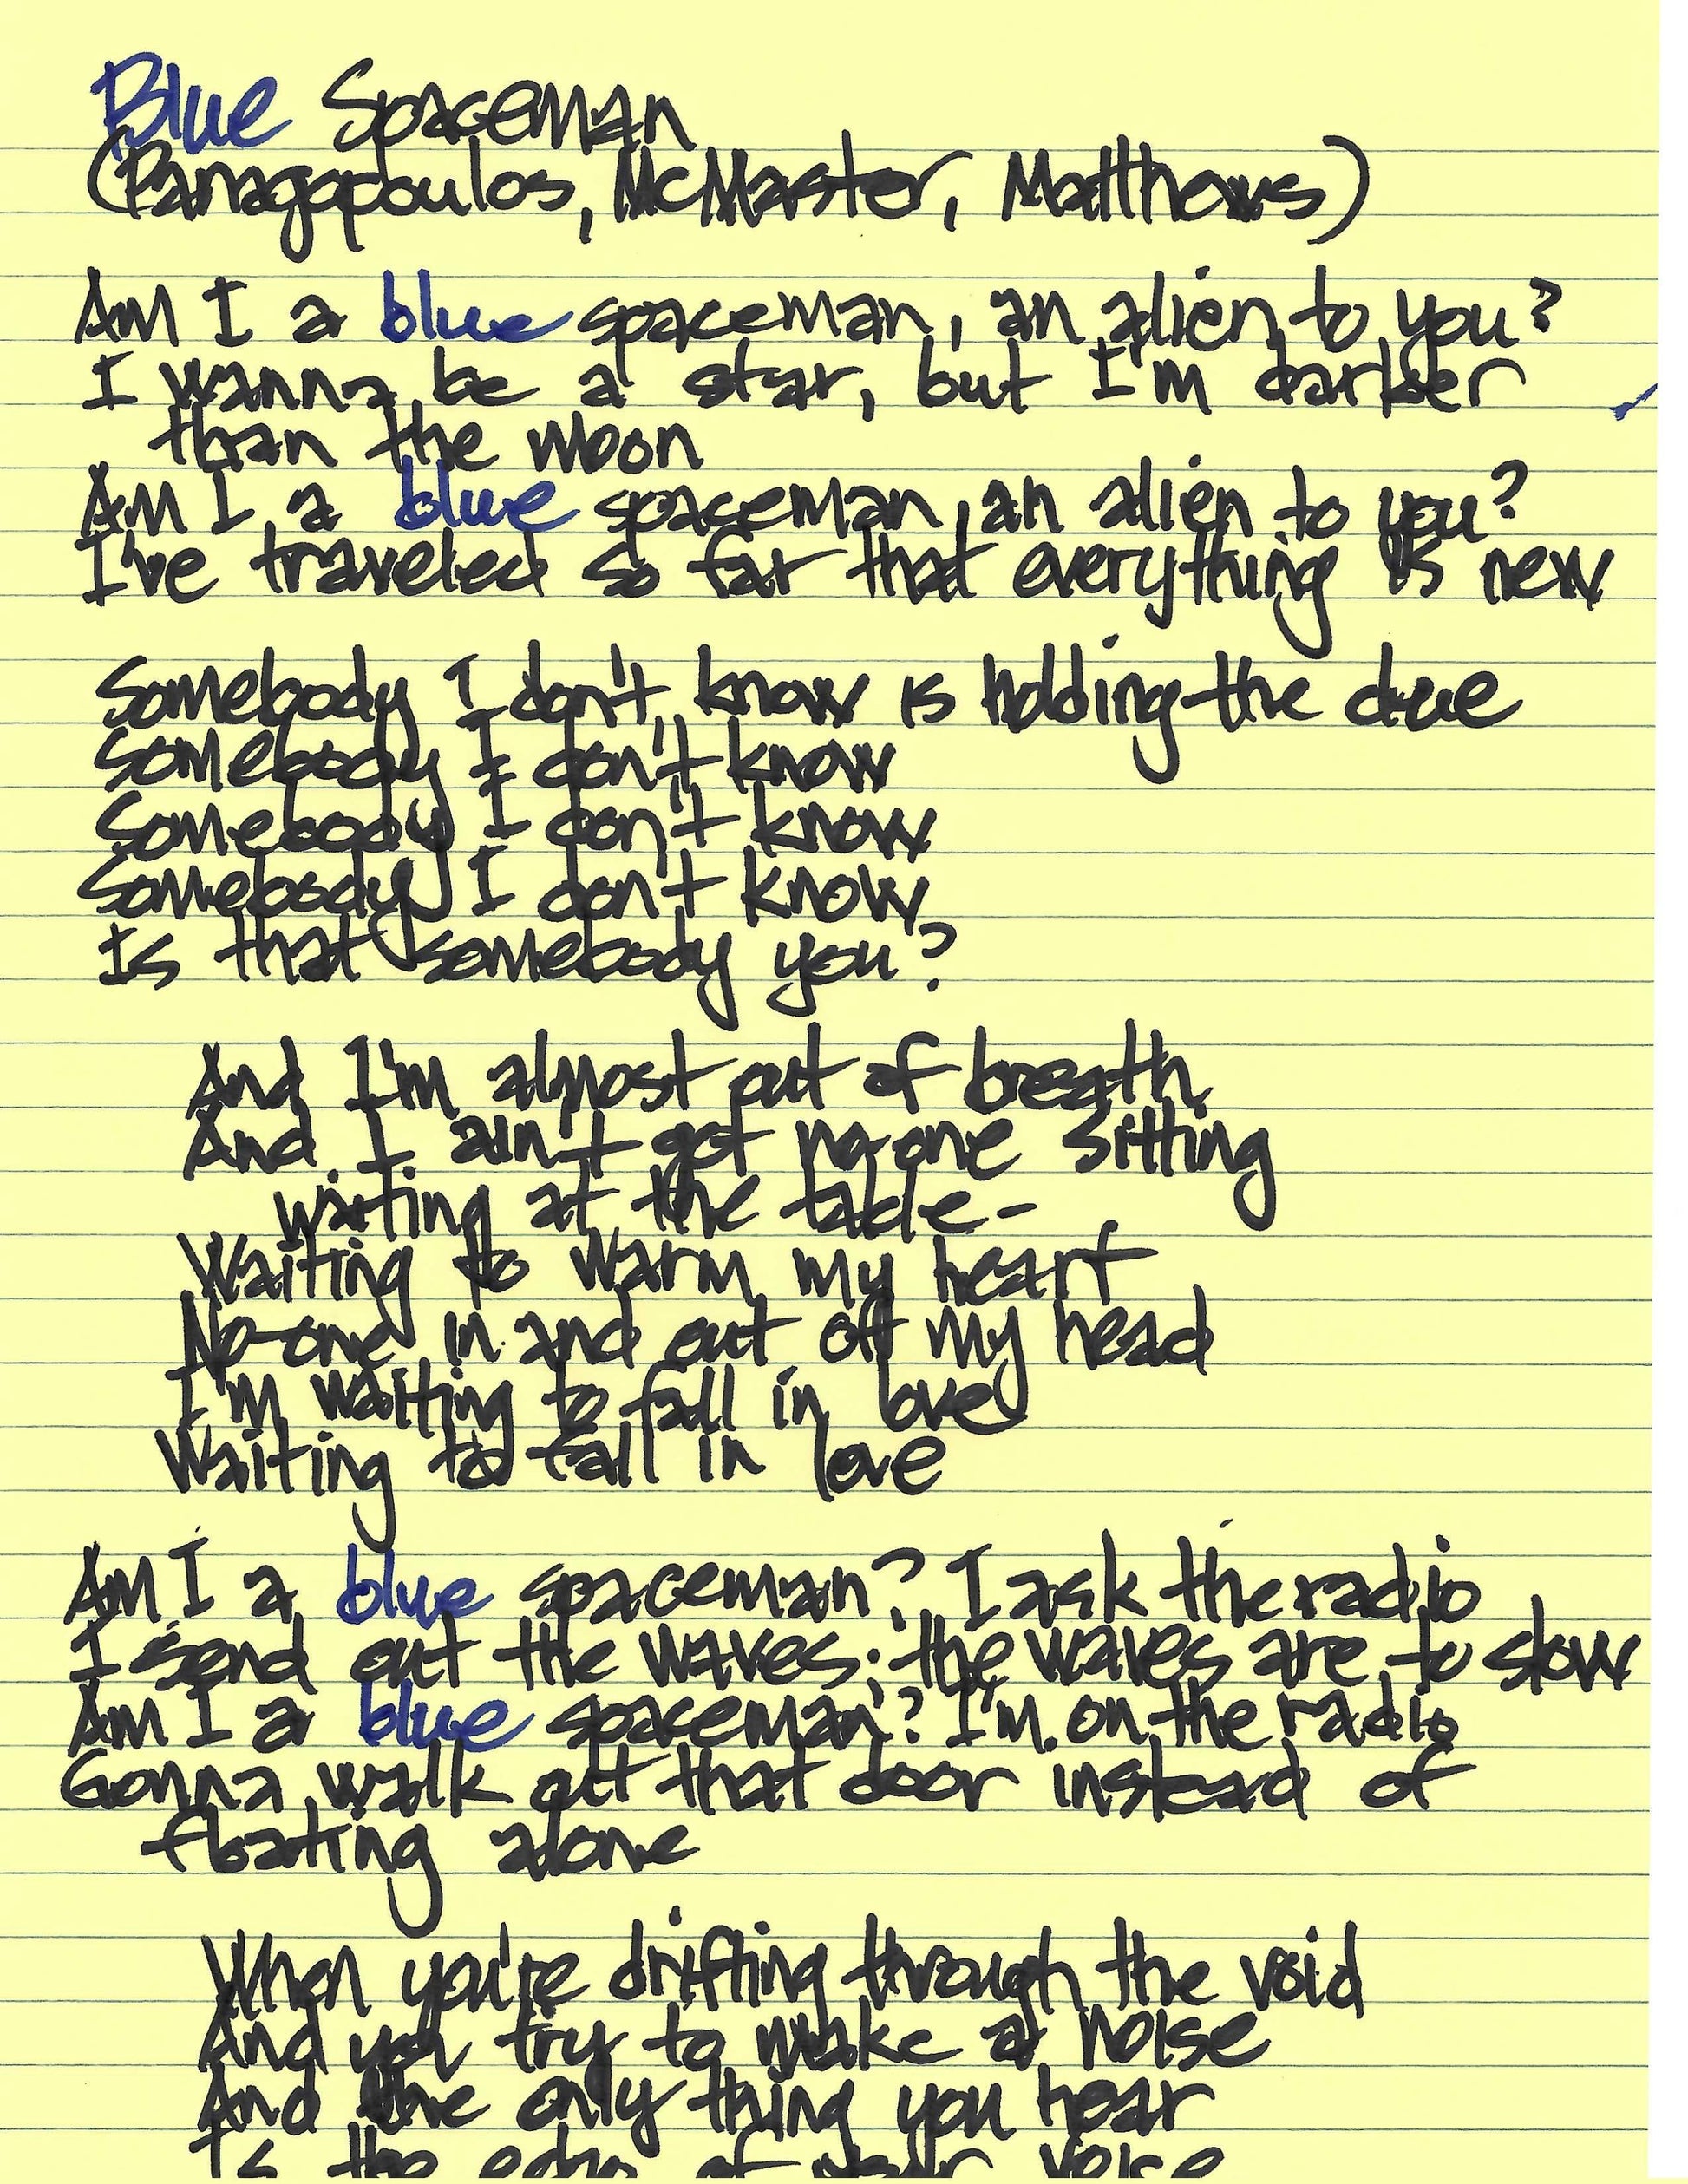 Blue Spaceman
(Panagopoulos, McMaster, Matthews)
Am I a blue spaceman, an alien to you?
I wanna be a star, but I'm darker
than the moon
Am I a blue spaceman, an alien to you?
I've traveled so far that everything is new
Somebody I don't know is holding the clue
Somebody I don't know
Somebody I don't know
Somebody I don't know
Is that somebody you?
And I'm almost out of breath
And I ain't got no-one sitting
waiting at the table-
Waiting to warm my heart
No-one in and out off my head
I'm waiting to fall in love
Waiting to fall in love
Am I a blue spaceman? I ask the radio
I send out the waves; the waves are to slow
Am I a blue spaceman? I'm on the radio
Gonna walk out that door instead of
floating alone
When you're drifting through the void
And you try to make a noise
And the only thing you hear
Is the echo of your voice